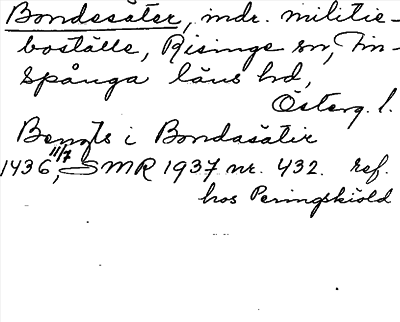 Bondesäter, mdr. militie-
boställe, Risinge sn, Fin-
spånga läns hd,
Österg. l.
Bengts i Bondasätir
1436 11/7, SMR 1937 nr. 432. ref.
hos Peringskiöld